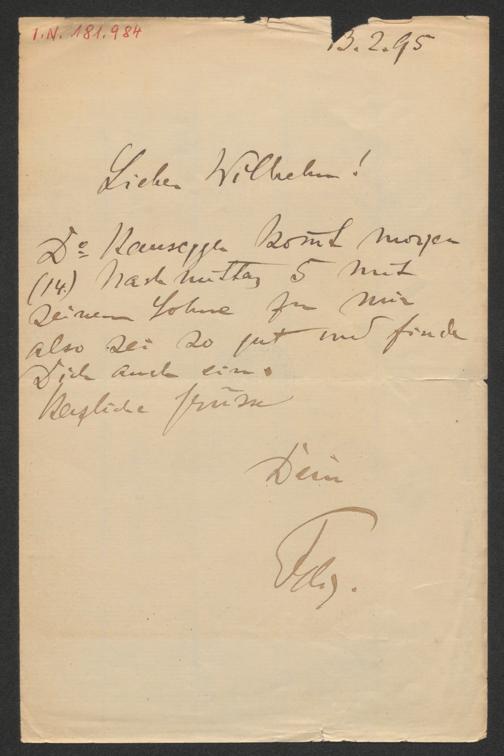 I.N. 181.984
13.2.95
Lieber Wilhelm!
Dr Hausegger kom̄t morgen
(14.) Nachmittag 5 mit
seinem Sohne zu mir
also sei so gut und finde
Dich auch ein.
Herzliche Grüsse
Dein